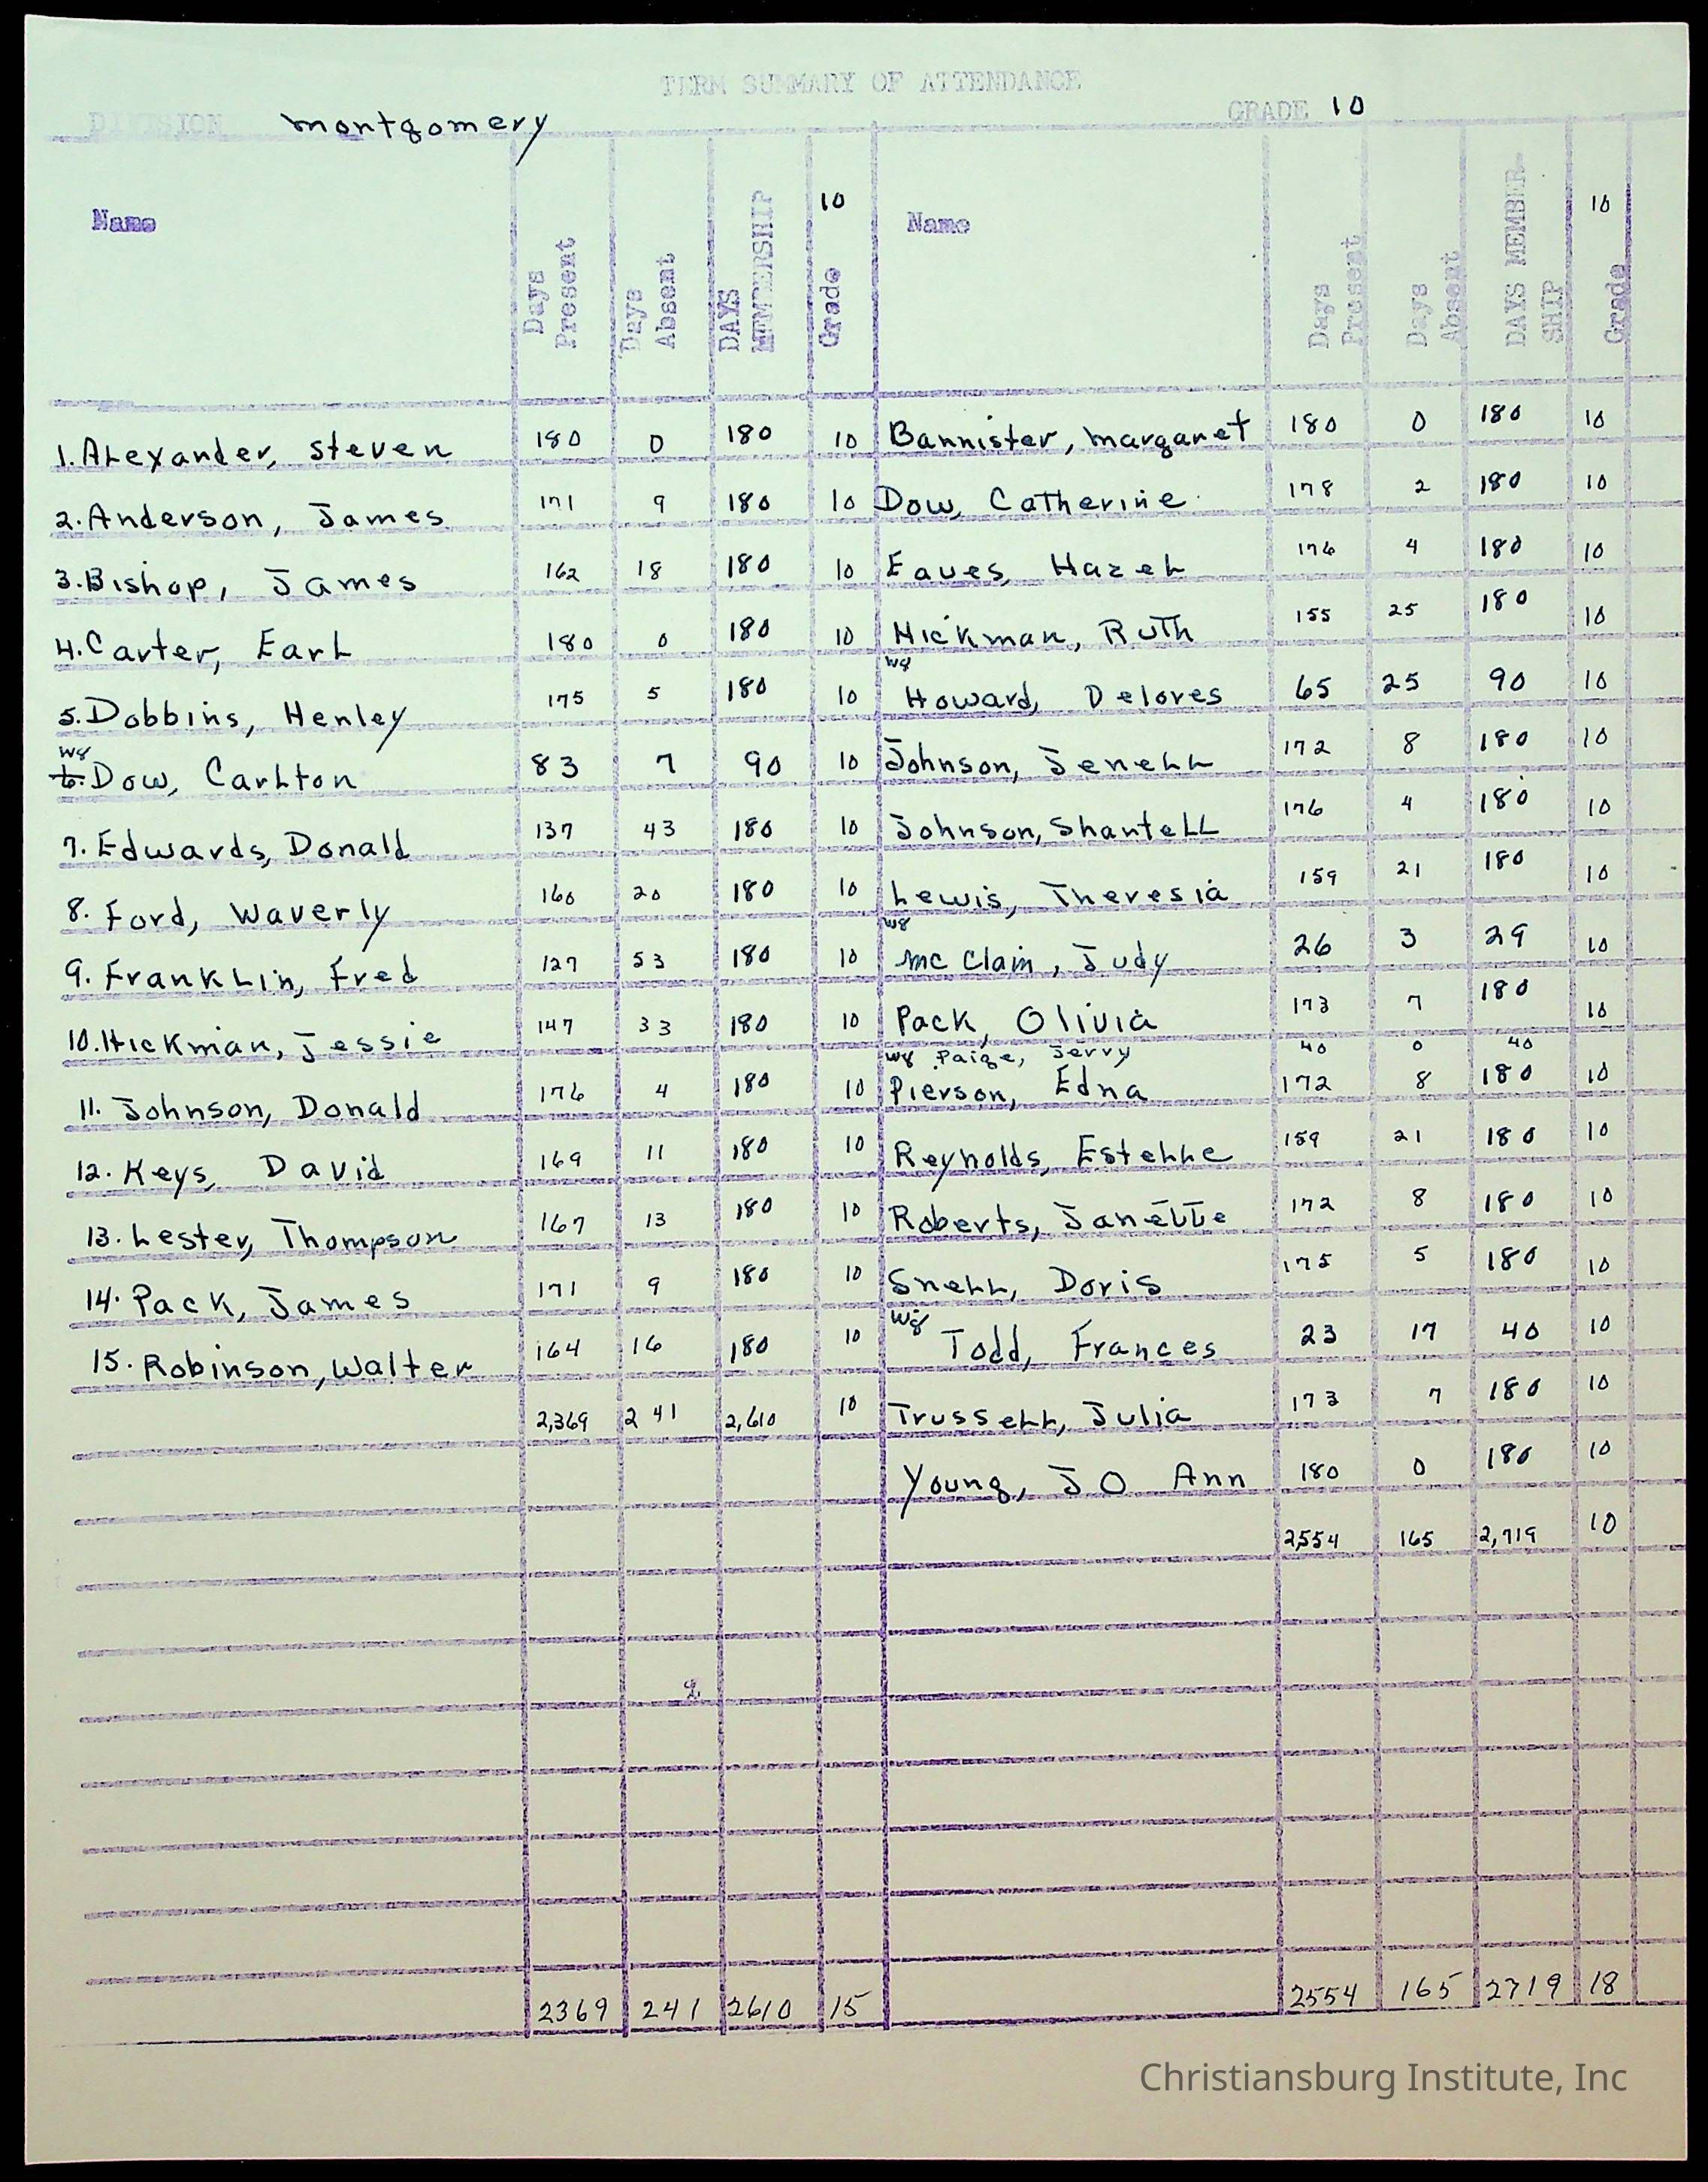 TERM SUMMARY OF ATTENDANCE
DIVISION montgomery GRADE 10
Name Days Present Days Absent DAYS MEMBERSHIP Grade 10 Name Days Present Days Absent DAYS MEMBER-SHIP Grade 10
1. Alexander, Steven 180 0 180 10 Bannister, Margaret 180 0 180 10
2. Anderson, James 171 9 180 10 Dow, Catherine 178 2 180 10
3. Bishop, James 162 18 180 10 Eaves, Hazel 176 4 180 10
4. Carter, Earl 180 0 180 10 Hickman, Ruth 155 25 180 10
5. Dobbins, Henley 175 5 180 10 W8 Howard, Delores 65 25 90 10
W8 6. Dow, Carlton 83 7 90 10 Johnson, Jenell 172 8 180 10
7. Edwards, Donald 137 43 180 10 Johnson, Shantell 176 4 180 10
8. Ford, Waverly 160 20 180 10 Lewis, Theresia 159 21 180 10
9. Franklin, Fred 127 53 180 10 W8 Mc Clain, Judy 26 3 29 10
10. Hickman, Jessie 147 33 180 10 Pack, Olivia 173 7 180 10
W8 Paige, Jerry 40 0 40
11. Johnson, Donald 176 4 180 10 Pierson, Edna 172 8 180 10
12. Keys, David 169 11 180 10 Reynolds, Estelle 159 21 180 10
13. Lester, Thompson 167 13 180 10 Roberts, Janette 172 8 180 10
14. Pack, James 171 9 180 10 Snell, Doris 175 5 180 10
15. Robinson, Walter 164 16 180 10 W8 Todd, Frances 23 17 40 10
2,369 241 2,610 10 Trussell, Julia 173 7 180 10
Young, Jo Ann 180 0 180 10
2554 165 2,719 10
2369 241 2610 15 2554 165 2719 18
Christiansburg Institute, Inc